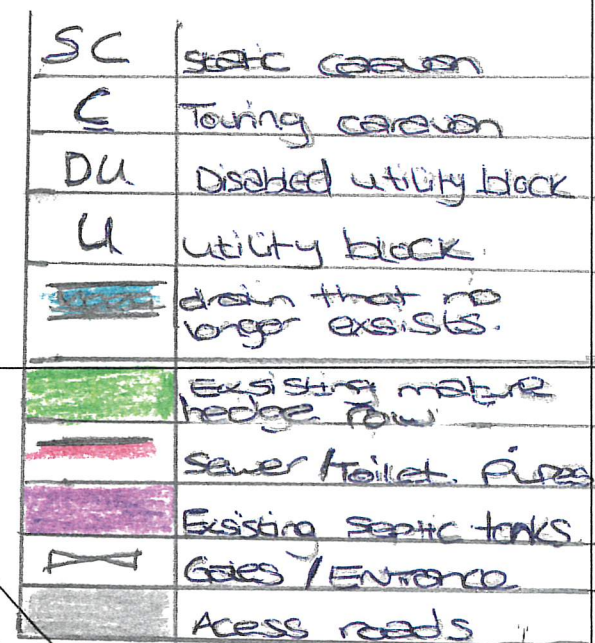 SC static caravan
C Touring caravan
DU Disabled utility block
U utility block
drain that no
longer exsists.
Exsisting mature
hedge row
Sewer / Toilet Pipes
Exsisting Septic tanks
Gates / ENTrance
Acess roads